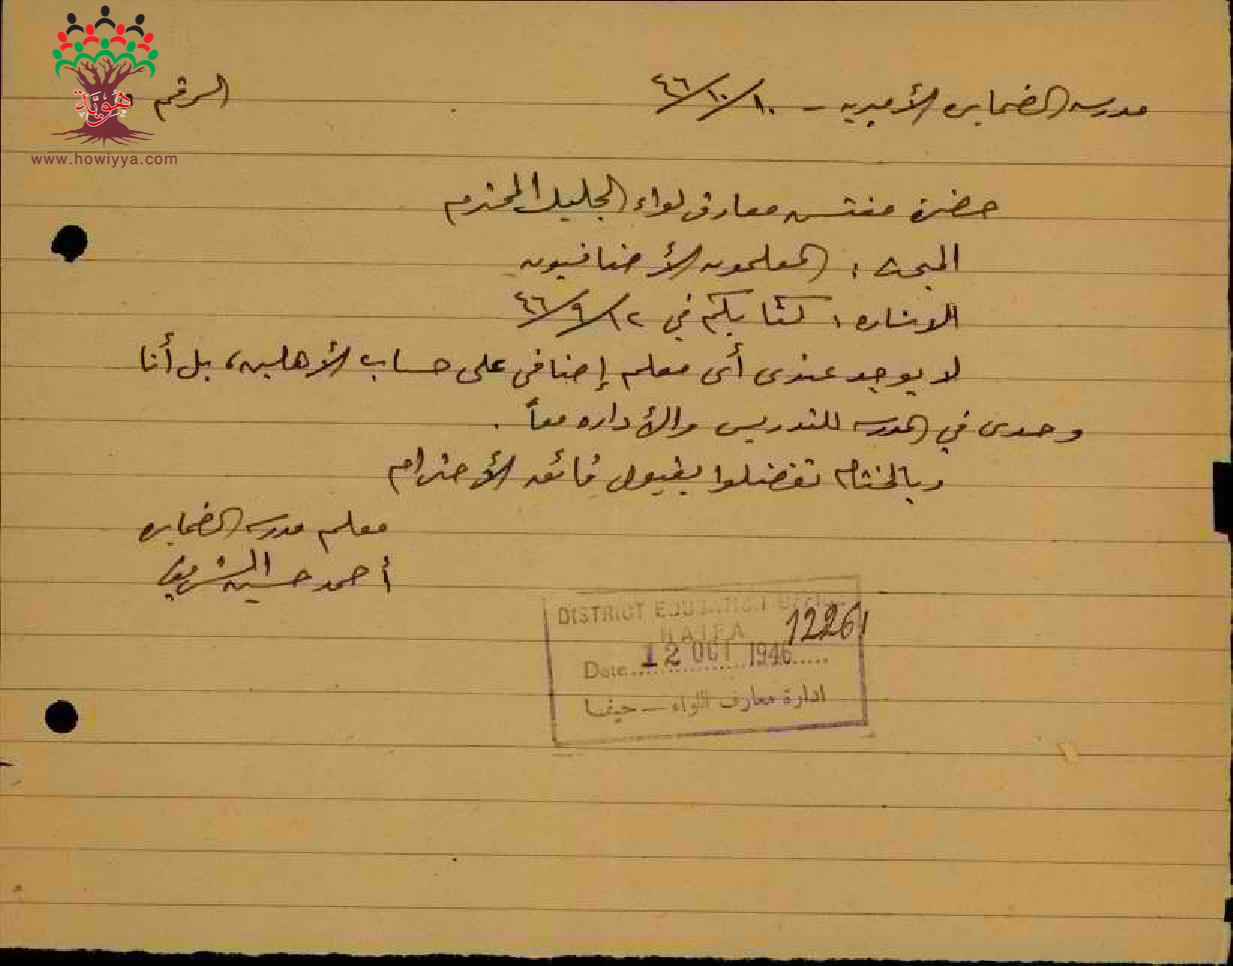 مدرسة الضهاير الأميرية – ١٠/١٠/٤٦
الرقم
هوية
www.howiyya.com
حضرة مفتش معارف لواء الجليل المحترم
المبحث : المعلمون الأضافيون
الاشارة : كتابكم في ١٢/٩/٤٦
لا يوجد عندى أى معلم إضافى على حساب الأهلين، بل أنا
وحدى في المدرسة للتدريس والأدارة معاً .
وبالختام تفضلوا بقبول فائق الأحترام
معلم مدرسة الضهاير
أحمد حسين الشريف
DISTRICT EDUCATION OFFICE
HAIFA
12261
Date 12 OCT 1946
ادارة معارف اللواء – حيفا